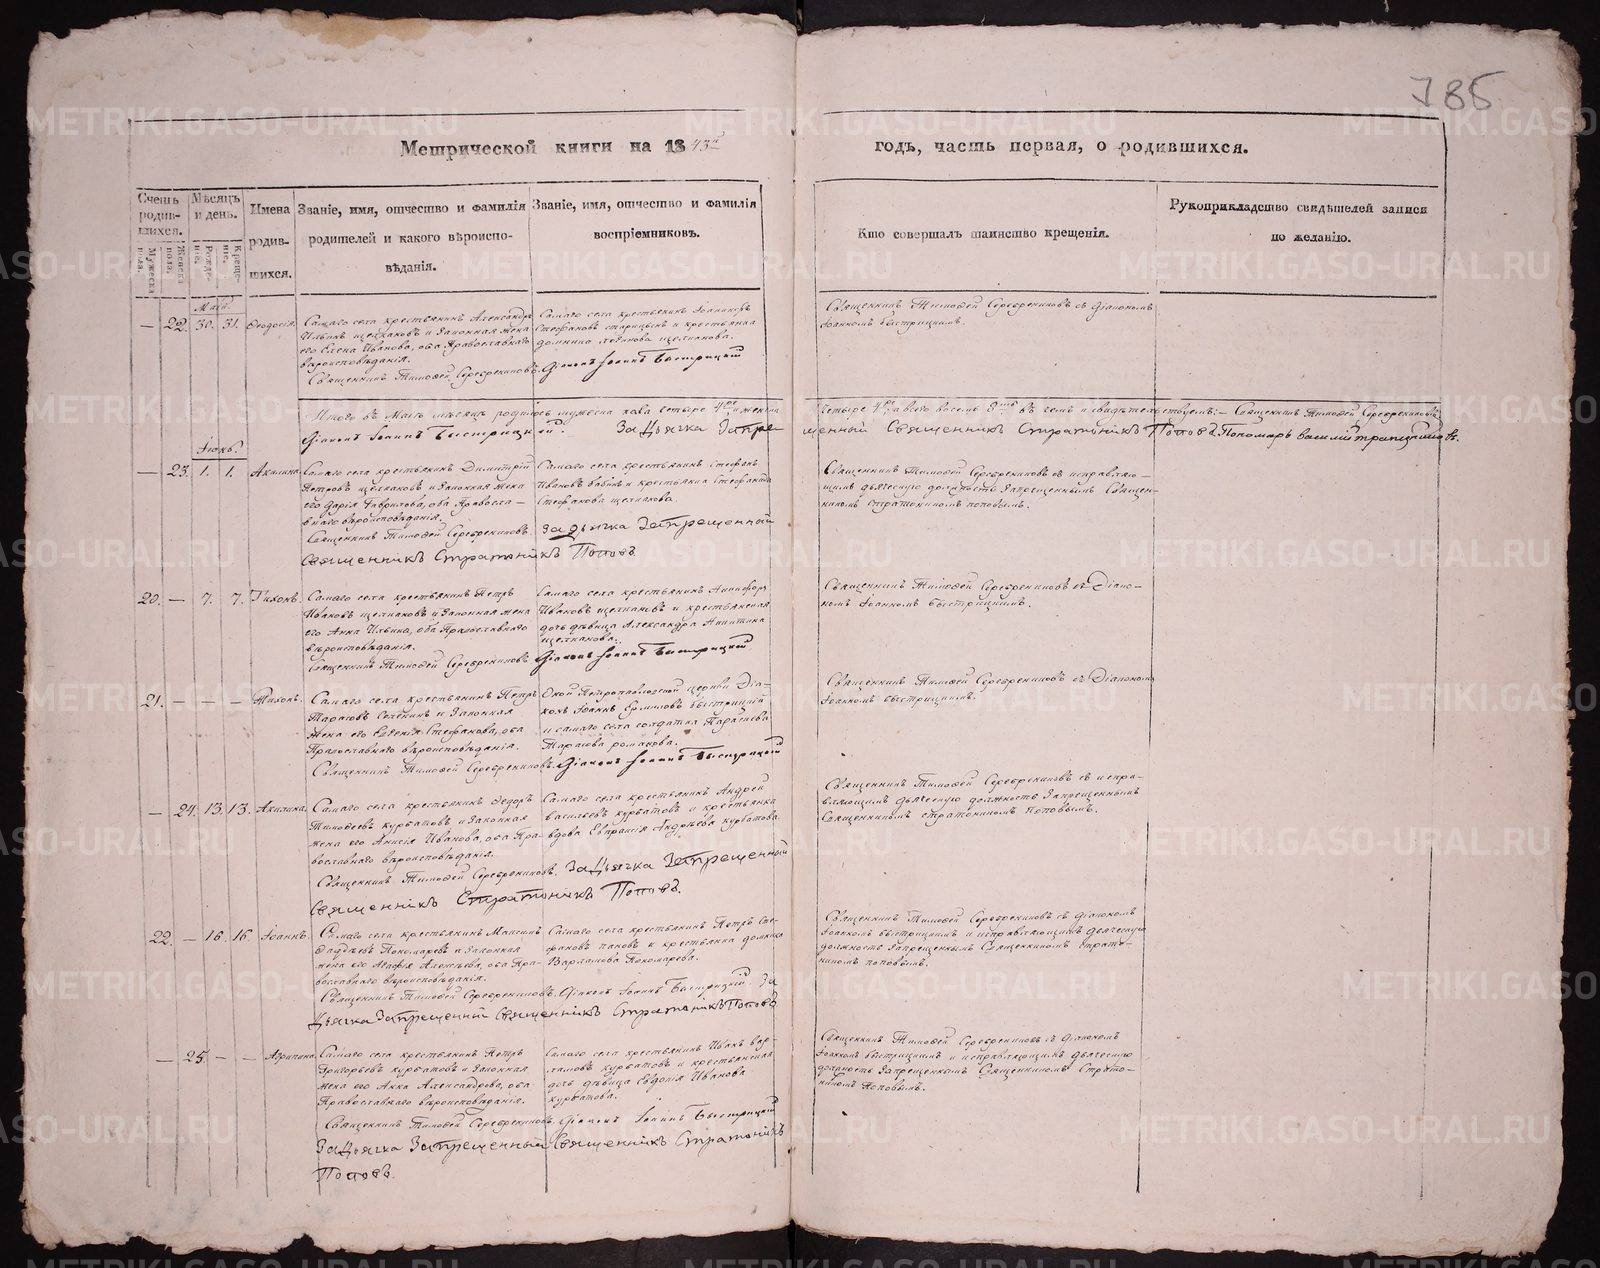 785
Метрической книги на 1843й годъ, часть первая, о родившихся.
Счетъ родившихся.
Мужеска пола.
Женска пола.
Мѣсяцъ и день.
Рожденіе.
Крещеніе.
Имена родившихся.
Званіе, имя, отчество и фамилія родителей и какого вѣроисповѣданія.
Званіе, имя, отчество и фамилія воспріемниковъ.
Кто совершалъ таинство крещенія.
Рукоприкладство свидѣтелей записи по желанію.
Май.
— 22. 30. 31. Ѳеодосія.
Самаго села крестьянинъ Александръ
Ильинъ Щелкановъ и законная жена
его Елена Иванова, оба Православнаго
вѣроисповѣданія.
Священникъ Тимофей Серебрениковъ.
Самаго села крестьянинъ Іоанникъ
Стефановъ Старицынъ и крестьянка
Домника Щелканова.
Діаконъ Іоаннъ Быстрицкій
Священникъ Тимофей Серебрениковъ съ Діакономъ
Іоанномъ Быстрицкимъ.
Итого въ Маѣ мѣсяцѣ родилось мужеска пола четыре 4ре и женска четыре 4ре а всего восемь 8мь въ чемъ и свидѣтельствуемъ: — Священникъ Тимофей Серебрениковъ
Діаконъ Іоаннъ Быстрицкій. За Дьячка Запрещенный Священникъ Стратоникъ Поповъ. Пономарь Василій
Іюнь.
— 23. 1. 1. Акилина.
Самаго села крестьянинъ Димитрій
Петровъ Щелкановъ и законная жена
его Дарія Гаврилова, оба Правосла-
внаго вѣроисповѣданія.
Священникъ Тимофей Серебрениковъ.
Самаго села крестьянинъ Стефанъ
Ивановъ Бабинъ и крестьянка Стефанида
Стефанова Щелканова.
За дьячка Запрещенный
Священникъ Стратоникъ Поповъ
Священникъ Тимофей Серебрениковъ съ исправляю-
щимъ дьяческую должность Запрещеннымъ Священ-
никомъ Стратоникомъ Поповымъ.
20. — 7. 7. Тихонъ.
Самаго села крестьянинъ Петръ
Ивановъ Щелкановъ и законная жена
его Анна Ильина, оба Православнаго
вѣроисповѣданія.
Священникъ Тимофей Серебрениковъ
Самаго села крестьянинъ Никифоръ
Ивановъ Щелкановъ и крестьянская
дочь дѣвица Александра Никитина
Щелканова.
Діаконъ Іоаннъ Быстрицкій
Священникъ Тимофей Серебрениковъ съ Діако-
номъ Іоанномъ Быстрицкимъ.
21. — — — Тихонъ.
Самаго села крестьянинъ Петръ
Тарасовъ и законная
жена его Евгенія Стефанова, оба
Православнаго вѣроисповѣданія.
Священникъ Тимофей Серебрениковъ.
Оной Петропавловской церкви Діа-
конъ Іоаннъ Ермиловъ Быстрицкій
и самаго села солдатка Параскева
Тарасова Романова.
Діаконъ Іоаннъ Быстрицкій
Священникъ Тимофей Серебрениковъ съ Діакономъ
Іоанномъ Быстрицкимъ.
— 24. 13. 13. Акилина.
Самаго села крестьянинъ Ѳедоръ
Тимофеевъ Курбатовъ и законная
жена его Анисія Иванова, оба Пра-
вославнаго вѣроисповѣданія.
Священникъ Тимофей Серебрениковъ.
Самаго села крестьянинъ Андрей
Васильевъ Курбатовъ и крестьянка
вдова Евпраксія Андреева Курбатова.
За Дьячка Запрещенный
Священникъ Стратоникъ Поповъ.
Священникъ Тимофей Серебрениковъ съ испра-
вляющимъ дьяческую должность Запрещеннымъ
Священникомъ Стратоникомъ Поповымъ.
22. — 16. 16. Іоаннъ.
Самаго села крестьянинъ Максимъ
Фаддеевъ Пономаревъ и законная
жена его Агафія Алексѣева, оба Пра-
вославнаго вѣроисповѣданія.
Священникъ Тимофей Серебрениковъ.
Самаго села крестьянинъ Петръ Сте-
фановъ Пановъ и крестьянка Домника
Варламова Пономарева.
Діаконъ Іоаннъ Быстрицкій. За
Дьячка Запрещенный Священникъ Стратоникъ Поповъ
Священникъ Тимофей Серебрениковъ съ Діакономъ
Іоанномъ Быстрицкимъ и исправляющимъ дьяческую
должность Запрещеннымъ Священникомъ Страто-
никомъ Поповымъ.
— 25. — — Агрипина.
Самаго села крестьянинъ Петръ
Григорьевъ Курбатовъ и законная
жена его Анна Александрова, оба
Православнаго вѣроисповѣданія.
Священникъ Тимофей Серебрениковъ.
Самаго села крестьянинъ Иванъ Вар-
ламовъ Курбатовъ и крестьянская
дочь дѣвица Евдокія Иванова
Курбатова.
Діаконъ Іоаннъ Быстрицкій
За Дьячка Запрещенный Священникъ Стратоникъ
Поповъ.
Священникъ Тимофей Серебрениковъ съ Діакономъ
Іоанномъ Быстрицкимъ и исправляющимъ дьяческую
должность Запрещеннымъ Священникомъ Страто-
никомъ Поповымъ.
METRIKI.GASO-URAL.RU